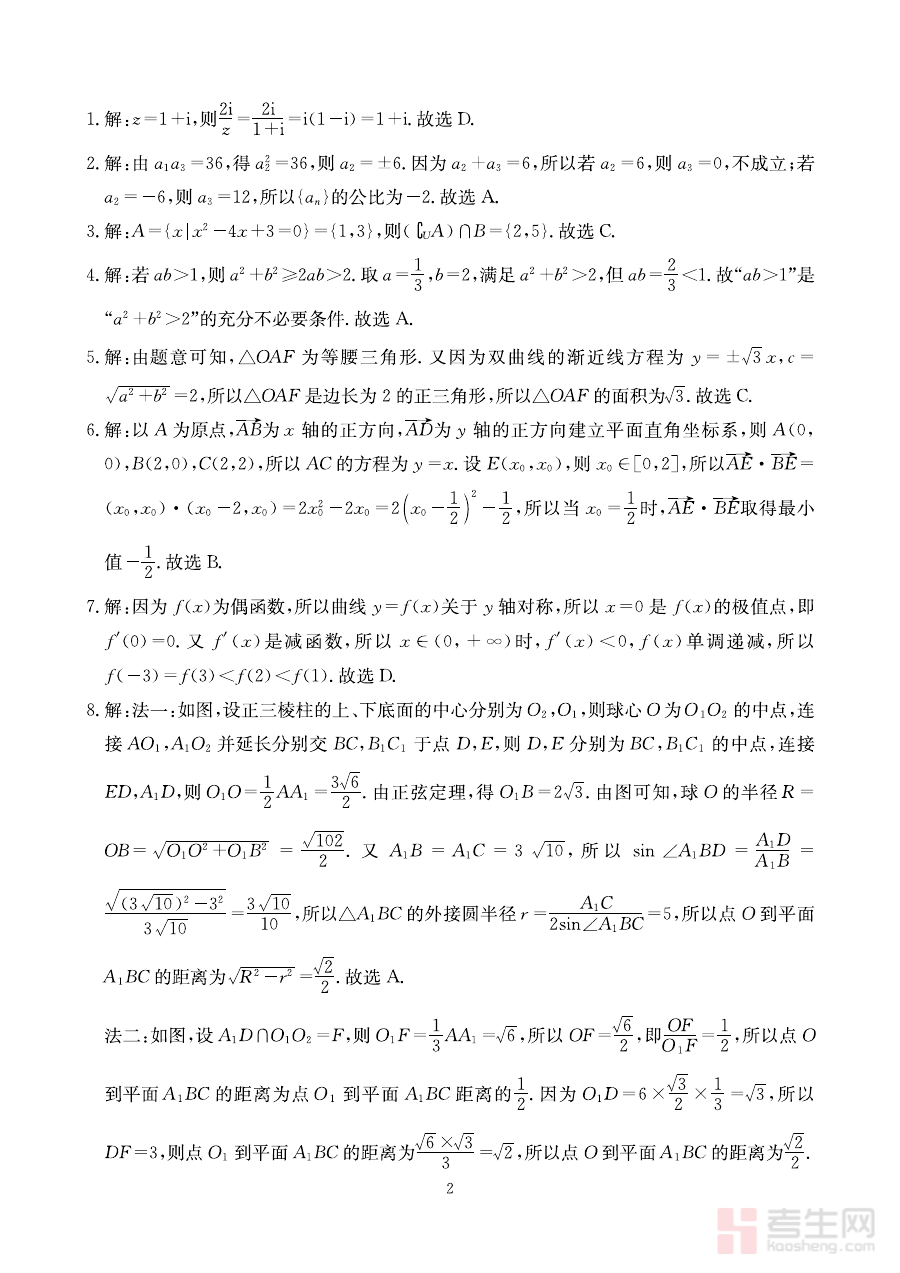 1. 解:z=1+i,则2i/z=2i/(1+i)=i(1-i)=1+i. 故选 D.
2. 解:由 a₁a₃=36,得 a₂²=36,则 a₂=±6. 因为 a₂+a₃=6,所以若 a₂=6,则 a₃=0,不成立;若
a₂=-6,则 a₃=12,所以{aₙ}的公比为-2. 故选 A.
3. 解:A={x|x²-4x+3=0}={1,3},则(∁ᵤA)∩B={2,5}. 故选 C.
4. 解:若 ab>1,则 a²+b²≥2ab>2. 取 a=1/3,b=2,满足 a²+b²>2,但 ab=2/3<1. 故“ab>1”是
“a²+b²>2”的充分不必要条件. 故选 A.
5. 解:由题意可知,△OAF 为等腰三角形. 又因为双曲线的渐近线方程为 y=±√3x,c=
√(a²+b²)=2,所以△OAF 是边长为 2 的正三角形,所以△OAF 的面积为√3. 故选 C.
6. 解:以 A 为原点,AB→为 x 轴的正方向,AD→为 y 轴的正方向建立平面直角坐标系,则 A(0,
0),B(2,0),C(2,2),所以 AC 的方程为 y=x. 设 E(x₀,x₀),则 x₀∈[0,2],所以AE→·BE→=
(x₀,x₀)·(x₀-2,x₀)=2x₀²-2x₀=2(x₀-1/2)²-1/2,所以当 x₀=1/2时,AE→·BE→取得最小
值-1/2. 故选 B.
7. 解:因为 f(x)为偶函数,所以曲线 y=f(x)关于 y 轴对称,所以 x=0 是 f(x)的极值点,即
f′(0)=0. 又 f′(x)是减函数,所以 x∈(0,+∞)时,f′(x)<0,f(x)单调递减,所以
f(-3)=f(3)<f(2)<f(1). 故选 D.
8. 解:法一:如图,设正三棱柱的上、下底面的中心分别为 O₂,O₁,则球心 O 为 O₁O₂ 的中点,连
接 AO₁,A₁O₂ 并延长分别交 BC,B₁C₁ 于点 D,E,则 D,E 分别为 BC,B₁C₁ 的中点,连接
ED,A₁D,则 O₁O=1/2AA₁=3√6/2. 由正弦定理,得 O₁B=2√3. 由图可知,球 O 的半径 R=
OB=√(O₁O²+O₁B²)=√102/2. 又 A₁B=A₁C=3√10,所以 sin∠A₁BD=A₁D/A₁B=
√((3√10)²-3²)/(3√10)=3√10/10,所以△A₁BC 的外接圆半径 r=A₁C/(2sin∠A₁BC)=5,所以点 O 到平面
A₁BC 的距离为√(R²-r²)=√2/2. 故选 A.
法二:如图,设 A₁D∩O₁O₂=F,则 O₁F=1/3AA₁=√6,所以 OF=√6/2,即OF/O₁F=1/2,所以点 O
到平面 A₁BC 的距离为点 O₁ 到平面 A₁BC 距离的1/2. 因为 O₁D=6×√3/2×1/3=√3,所以
DF=3,则点 O₁ 到平面 A₁BC 的距离为(√6×√3)/3=√2,所以点 O 到平面 A₁BC 的距离为√2/2.
2
考生网
kaosheng.com